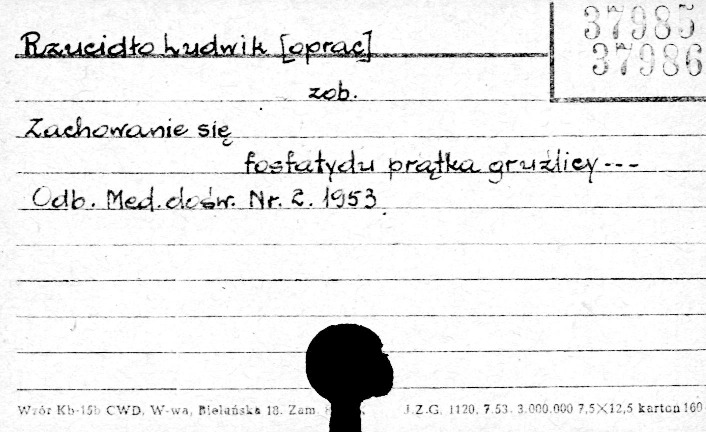 37985
37986
Rzucidło Ludwik [oprac]
zob.
Zachowanie się
fosfatydu prątka gruźlicy ---
Odb. Med. dośw. Nr. 2. 1953.
Wzór Kb-15b CWD, W-wa, Bielańska 18. Zam. J.Z.G. 1120. 7.53. 3.000.000 7,5×12,5 karton 160